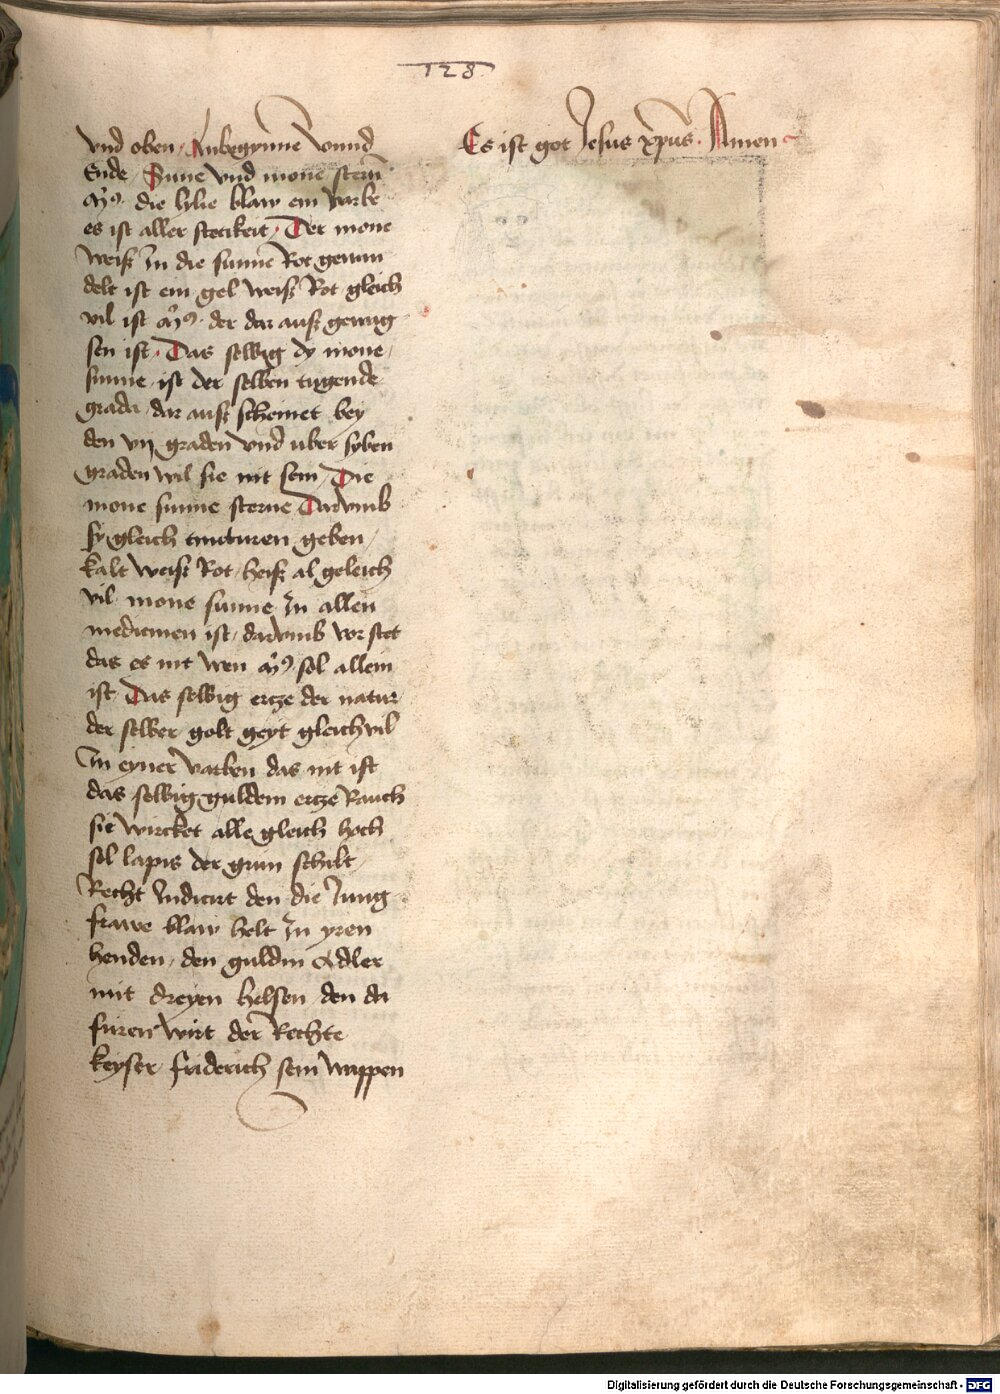 128
vnd oben / Anbegynne vnnd
Ende / Sunne vnd mone stern
die lylie blaw ein varbe
es ist aller stetikeit / Der mone
weiß Jn die sunne Rot gewan
delt ist ein gel weiß Rot gleich
vil ist der dar auß gewag
sen ist / Das selbig dy mone /
sunne ist der selben tugende
grada dar auß scheinet bey
den vij graden vnd uber syben
graden wil sie nit sein / Die
mone sunne sterne Darvmb
sy gleich tincturen geben /
kalt weiß Rot heiß al geleich
vil mone sunne Jn allen
medicinen ist / darvmb vorstet
das es nit wen sol allein
ist Das selbig ertze der natur
der selber golt geyt gleich vil
Jn eyner varben das nit ist
das selbig guldein ertze Rauch
sie wircket alle gleich hoch
sol lapis der grun schilt /
Recht Judicirt den die Jung
frawe blaw helt Jn yren
henden / den guldin Adler
mit dreyen helsen den da
furen wirt der Rechte
keyser friderich sein wappen
Es ist got Jesus xp̄us . Amen
Digitalisierung gefördert durch die Deutsche Forschungsgemeinschaft - DFG